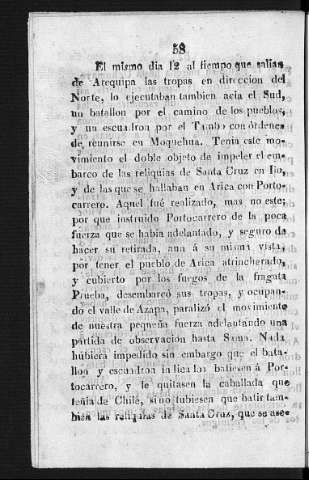 58
El mismo dia 12 al tiempo que salian
de Arequipa las tropas en direccion del
Norte, lo ejecutaban tambien acia el Sud,
un batallon por el camino de los pueblos,
y un escuadron por el Tambo con órdenes
de reunirse en Moquehua. Tenia este mo-
vimiento el doble objeto de impeler el em-
barco de las reliquias de Santa Cruz en Ilo,
y de las que se hallaban en Arica con Porto-
carrero. Aquel fué realizado, mas no este;
por que instruido Portocarrero de la poca
fuerza que se habia adelantado, y seguro de
hacer su retirada, aun á su misma vista,
por tener el pueblo de Arica atrincherado,
y cubierto por los fuegos de la fragata
Prueba, desembarcó sus tropas, y ocupan-
do el valle de Azapa, paralizó el movimiento
de nuestra pequeña fuerza adelantando una
partida de observacion hasta Sama. Nada
hubiera impedido sin embargo que el bata-
llon y escuadron indicados batiesen á Por-
tocarrero, y le quitasen la caballada que
tenia de Chile, si no tubiesen que batir tam-
bien las reliquias de Santa Cruz, que se ase-